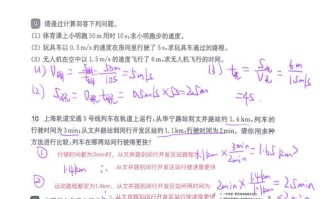 9 请通过计算回答下列问题。
(1)体育课上小明跑50m用时10s,求小明跑步的速度。
(2)玩具车以0.5m/s的速度在房间里行驶了5s,求玩具车通过的路程。
(3)无人机在空中以1.5m/s的速度飞行了6m,求无人机飞行的时间。
(1) = 50m/10s = 5m/s (3) = 6m/1.5m/s
(2) = 0.5m/s × 5s = 2.5m = 4s
10 上海轨道交通5号线列车在轨道上运行,从华宁路站到文井路站约1.4km,列车的
行驶时间为3min;从文井路站到闵行开发区站约1.1km,行驶时间为2min。请你用多种
方法进行比较:列车在哪两站间行驶得更快?
① 行驶时间都为3min时,从文井路到闵行开发区站路程
1.4km
从文井路到闵行开发区站行驶速度更快
② 运动路程都为1.4km,从文井路到闵行开发区站所用时间为
从文井路到闵行开发区站行驶速度更快